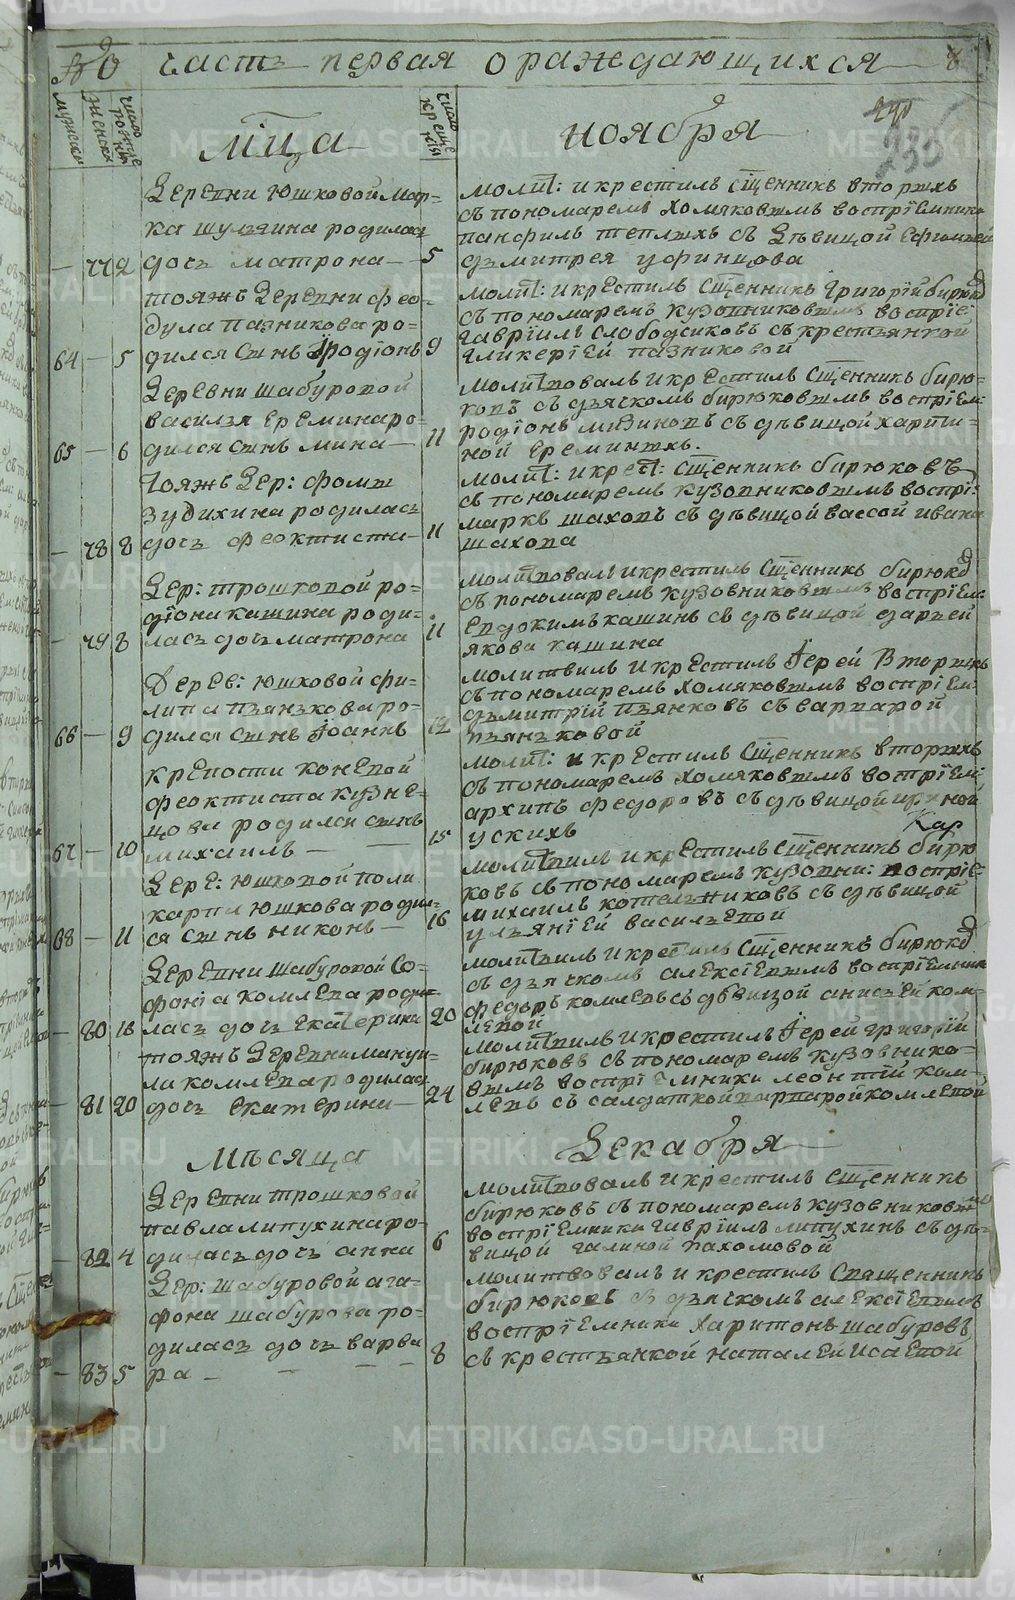 № часть первая о раждающихся 8
мужеска
женска
число рожде нїя
число кр еще нїя
Мца ноября
235
деревни юшковой мар=
ка шульгина родилась
— 77 2 дочь матрона — 5
молит: и крестилъ Сщенникъ вторыхъ
съ пономаремъ хомяковымъ воспрїемники
панфилъ теплыхъ съ девицой ефимьей
дьмитрея уфинцова
тояжъ деревни фео=
дула пазникова ро=
64 — 5 дился сынъ Родїонъ 9
молит: и крестилъ Сщенникъ григорїй бирюков
съ пономаремъ кузовниковымъ воспрїе:
гаврїилъ слободсковъ съ крестьянкой
гликерїей пазниковой
деревни шабуровой
василья еремина ро=
65 — 6 дился сынъ мина — 11
молитвовалъ и крестилъ Сщенникъ бирю=
ковъ съ дьячкомъ бирюковымъ воспрїем:
родїонъ мизиновъ съ девицой харти=
ной ереминыхъ.
тояжъ дер: фомы
зудихина родилась
— 78 8 дочь феоктиста — 11
молит: и крест: Сщенникъ бирюковъ
съ пономаремъ кузовниковымъ воспрї:
маркъ шаховъ съ девицой вассой ивана
шахова
дер: трошковой ро=
дїона кашина роди=
— 79 8 лась дочь матрона 11
молитвовалъ и крестилъ Сщенникъ бирюков
съ пономаремъ кузовниковымъ воспрїем:
евдокимъ кашинъ съ девицой дарьей
якова кашина
Дерев: юшковой фи=
липа пьянкова ро=
66 — 9 дился сынъ Іоаннъ 12
молитвилъ и крестилъ Іерей Вторыхъ
съ пономаремъ хомяковымъ воспрїем:
дьмитрїй пьянковъ съ варварой
пьянковой
крепости коневой
феоктиста кузне=
цова родился сынъ
67 — 10 михаилъ — 15
молит: и крестилъ Сщенникъ вторыхъ
съ пономаремъ хомяковымъ воспрїем:
архипъ федоровъ съ девицой ириной
ускихъ
Кар
дере: юшковой поли
карпа юшкова родил=
68 — 11 ся сынъ никонъ — 16
молитвилъ и крестилъ Сщенникъ бирю
ковъ съ пономаремъ кузовни: воспрїе
михаилъ котельниковъ съ девицой
ульянїей васильевой
деревни шабуровой Со=
фонїа комлева роди=
— 80 18 лась дочь екатерина 20
молитвилъ и крестилъ Сщенникъ бирюков
съ дьячкомъ алексїевымъ воспрїемники
федоръ комлевъ съ девицой анисьей ком=
левой
тояжъ деревни мануи=
ла комлева родилась
— 81 20 дочь екатерина — 24
молитвилъ и крестилъ Іерей григорїй
бирюковъ съ пономаремъ кузовнико=
вымъ воспрїемники леонтїй ком=
левъ съ салдаткой варварой комлевой
Месяца Декабря
деревни трошковой
павла липухина ро=
— 82 4 дилась дочь анна 6
молитвовалъ и крестилъ Сщенникъ
бирюковъ съ пономаремъ кузовниковымъ
воспрїемники гаврїилъ липухинъ съ де=
вицой галиной пахомовой
дер: шабуровой ага=
фона шабурова ро=
дилась дочь варва
— 83 5 ра — — — 8
молитвовалъ и крестилъ Священникъ
бирюковъ съ дьячкомъ алексїевымъ
воспрїемники харитонъ шабуровъ
съ крестьянкой натальей исаевой
METRIKI.GASO-URAL.RU